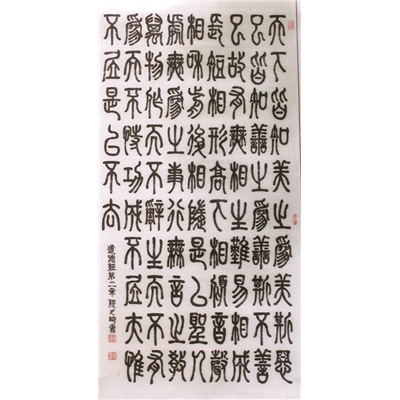 天下皆知美之為美斯惡
已皆知善之為善斯不善
已故有無相生難易相成
長短相形高下相傾音聲
相和前後相隨是以聖人
處無為之事行無言之教
萬物作而不辭生而不有
為而不恃功成不居夫惟
不居是以不去
道德經第二章 書